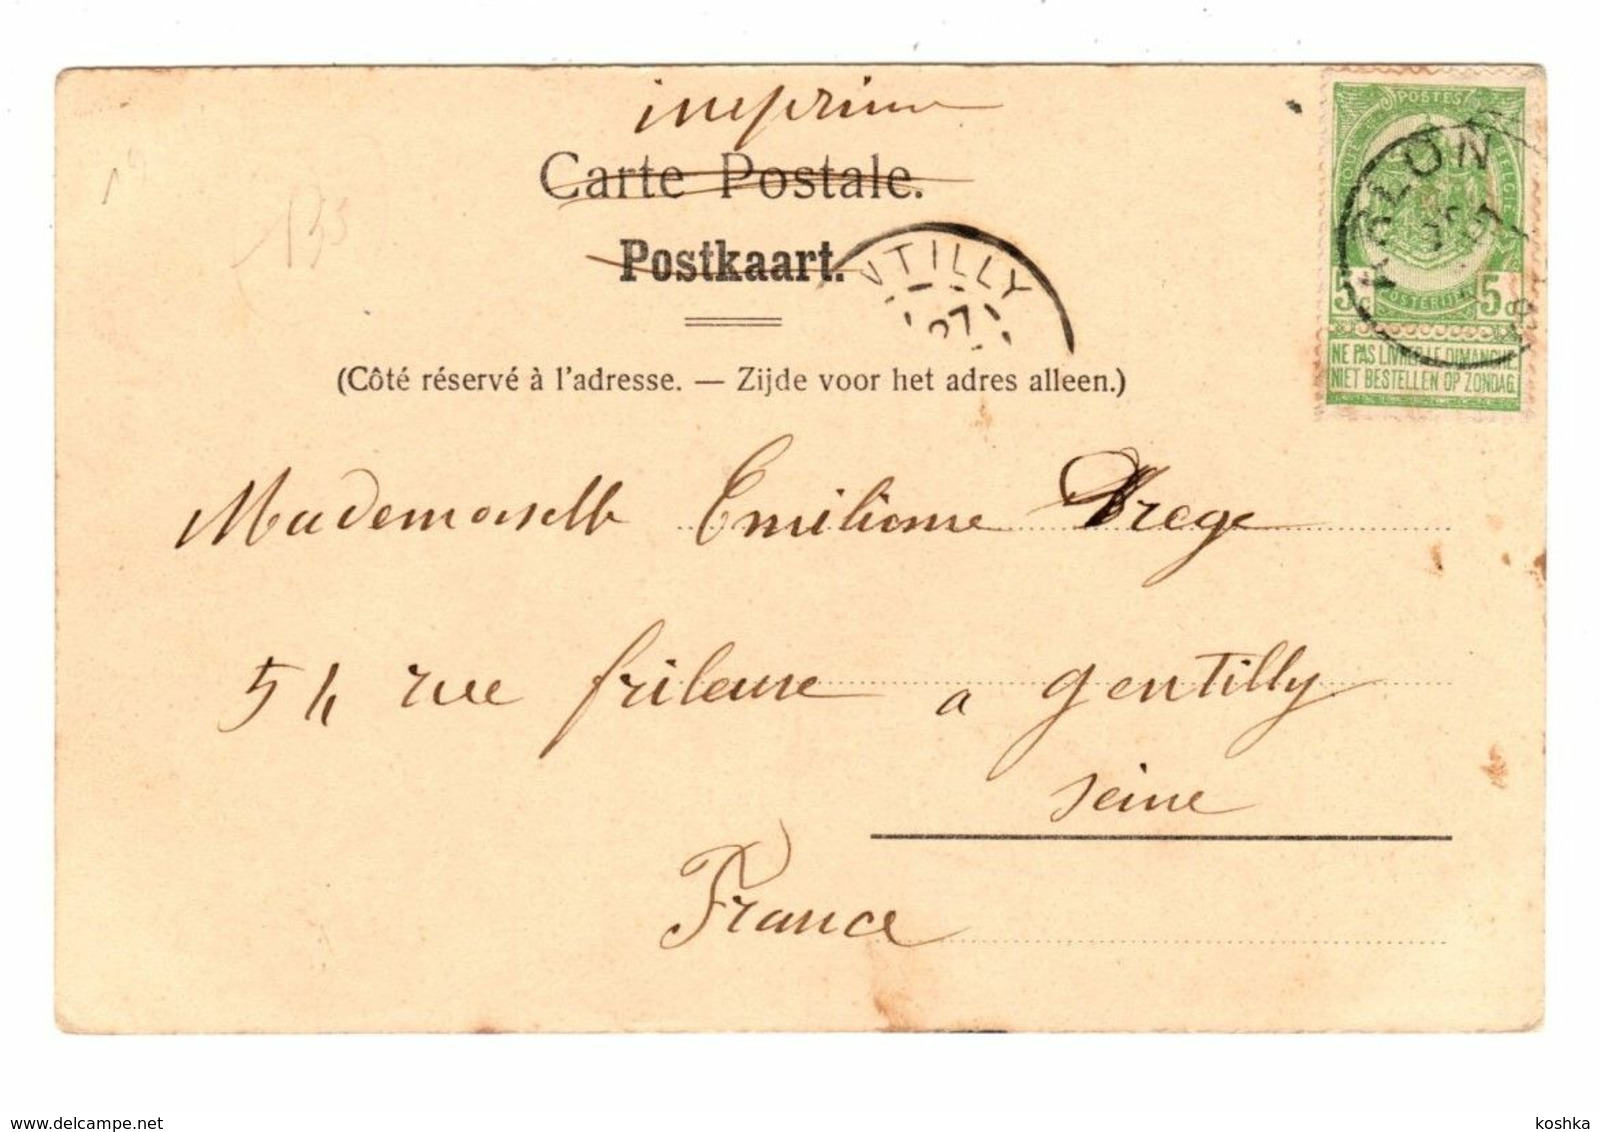 imprimé
Carte Postale.
Postkaart.
NTILLY
27
(Côté réservé à l'adresse. — Zijde voor het adres alleen.)
POSTES
BELGIQUE BELGIE
ARLON
5c 5c
POSTERIJEN
NE PAS LIVRER LE DIMANCHE
NIET BESTELLEN OP ZONDAG
Mademoiselle Emilienne Drege
54 rue frileuse a gentilly
seine
France
delcampe.net
koshka